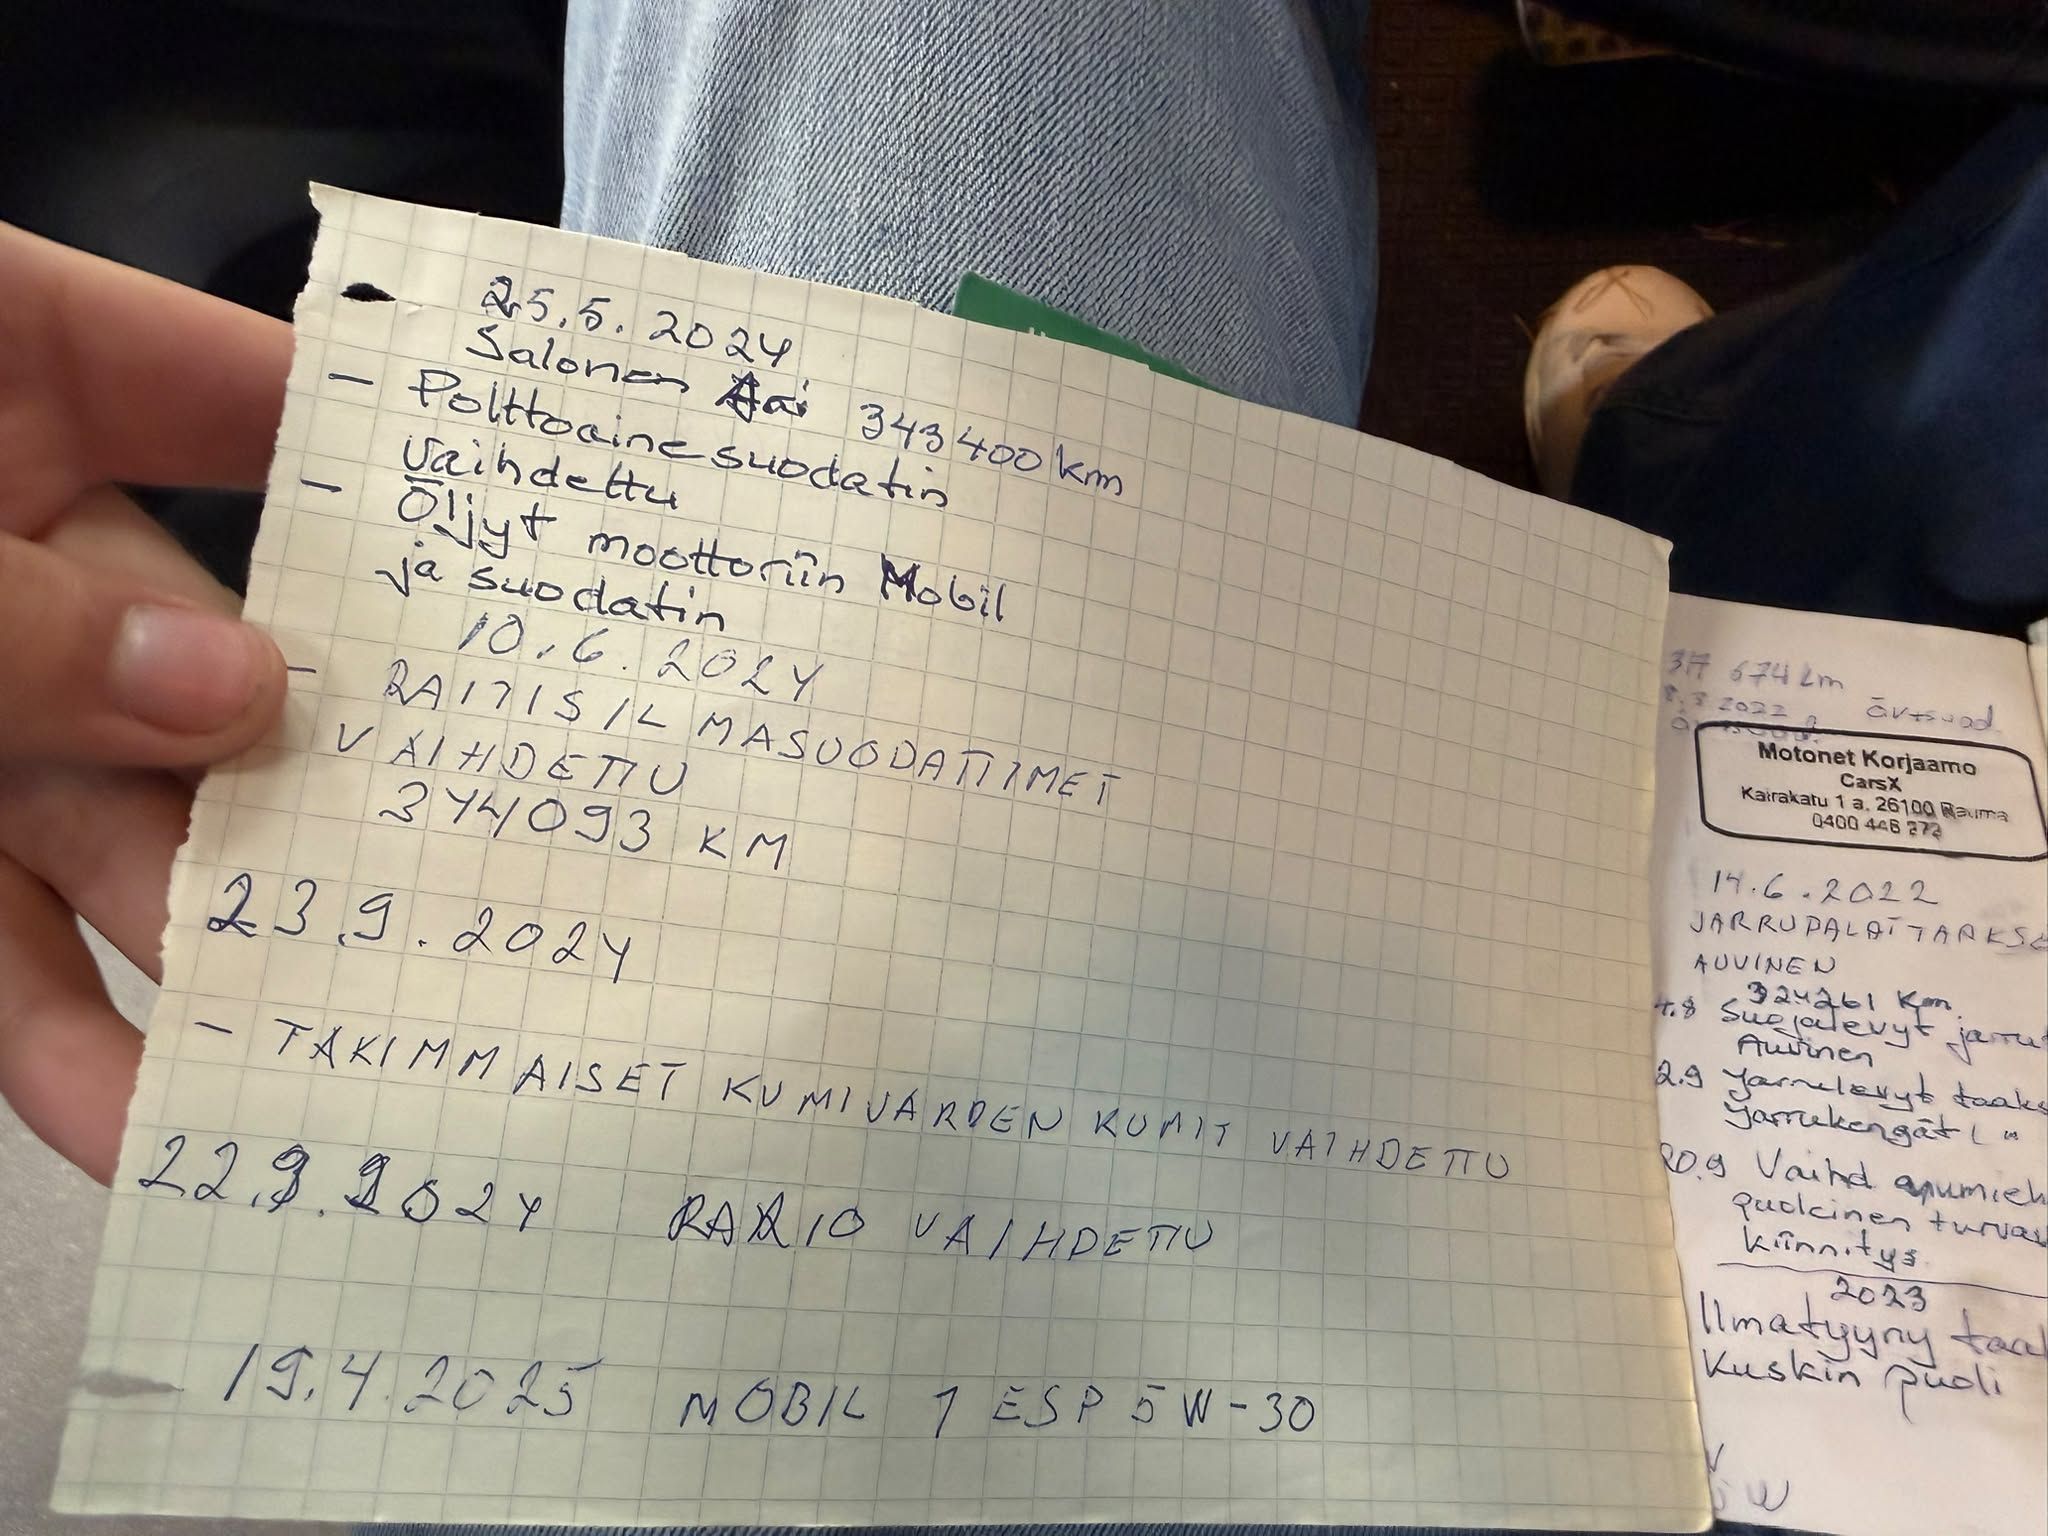 25.5.2024
Salonen Aai 343400 km
- Polttoainesuodatin
vaihdettu
- Öljyt moottoriin Mobil
ja suodatin
10.6.2024
- RAITISILMASUODATTIMET
VAIHDETTU
344093 KM
23.9.2024
- TAKIMMAISET KUMIVARDEN KUMIT VAIHDETTU
2024 RADIO VAIHDETTU
19.4.2025 MOBIL 1 ESP 5W-30
317 674 km
8.3.2022
Motonet Korjaamo
CarsX
Kairakatu 1 a, 26100 Rauma
0400 446 272
14.6.2022
JARRUPALAT TAAKSE
AUVINEN
324261 Km
4.8 Suojalevyt jarru
Auvinen
2.9 Jarrulevyt taaks
Jarrukengät "
20.9 Vaihd apumieh
puoleinen turvav
kiinnitys
2023
Ilmatyyny taa
Kuskin puoli
W